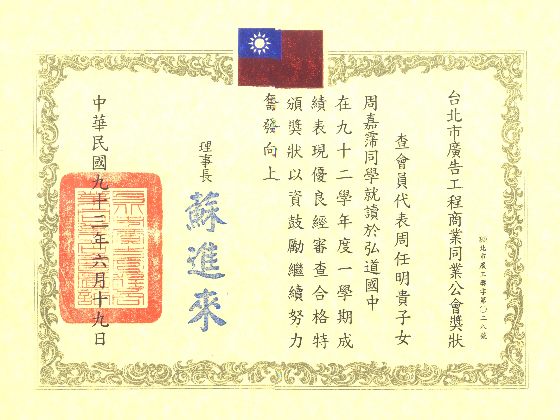 台北市廣告工程商業同業公會獎狀
北市廣工獎字第〇二八號
查會員代表周任明貴子女
周嘉霈同學就讀於弘道國中
在九十二學年度一學期成
績表現優良經審查合格特
頒獎狀以資鼓勵繼續努力
奮發向上
理事長
蘇進來
中華民國九十三年六月十九日